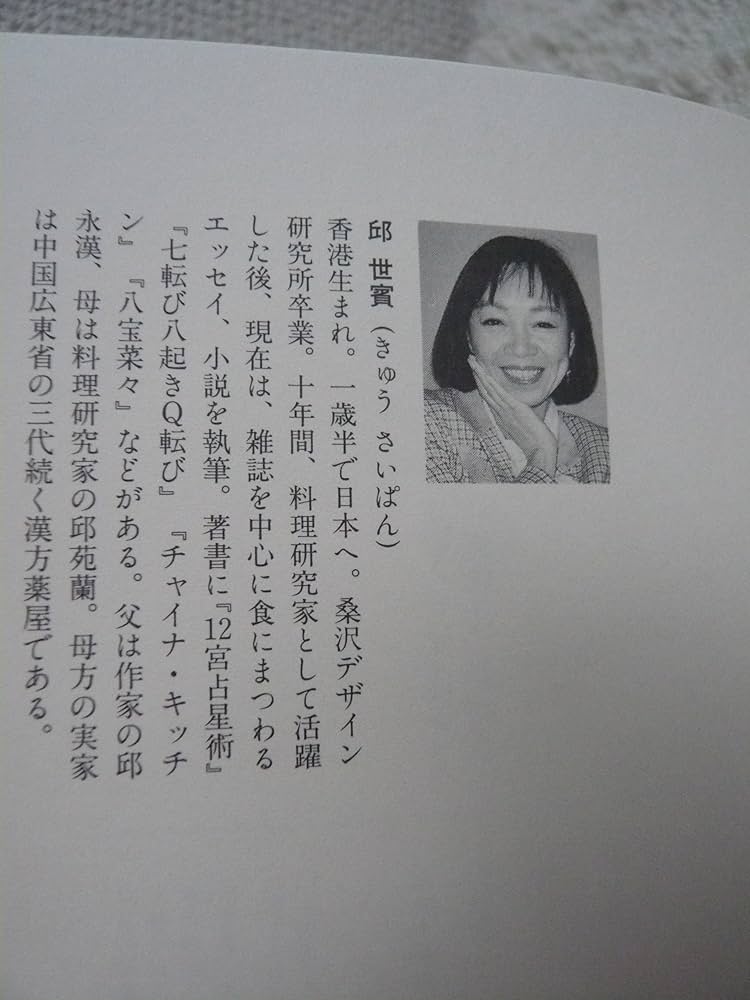 邱 世賓（きゅう さいぱん）
香港生まれ。一歳半で日本へ。桑沢デザイン
研究所卒業。十年間、料理研究家として活躍
した後、現在は、雑誌を中心に食にまつわる
エッセイ、小説を執筆。著書に『12宮占星術』
『七転び八起きQ転び』『チャイナ・キッチ
ン』『八宝菜々』などがある。父は作家の邱
永漢、母は料理研究家の邱苑蘭。母方の実家
は中国広東省の三代続く漢方薬屋である。